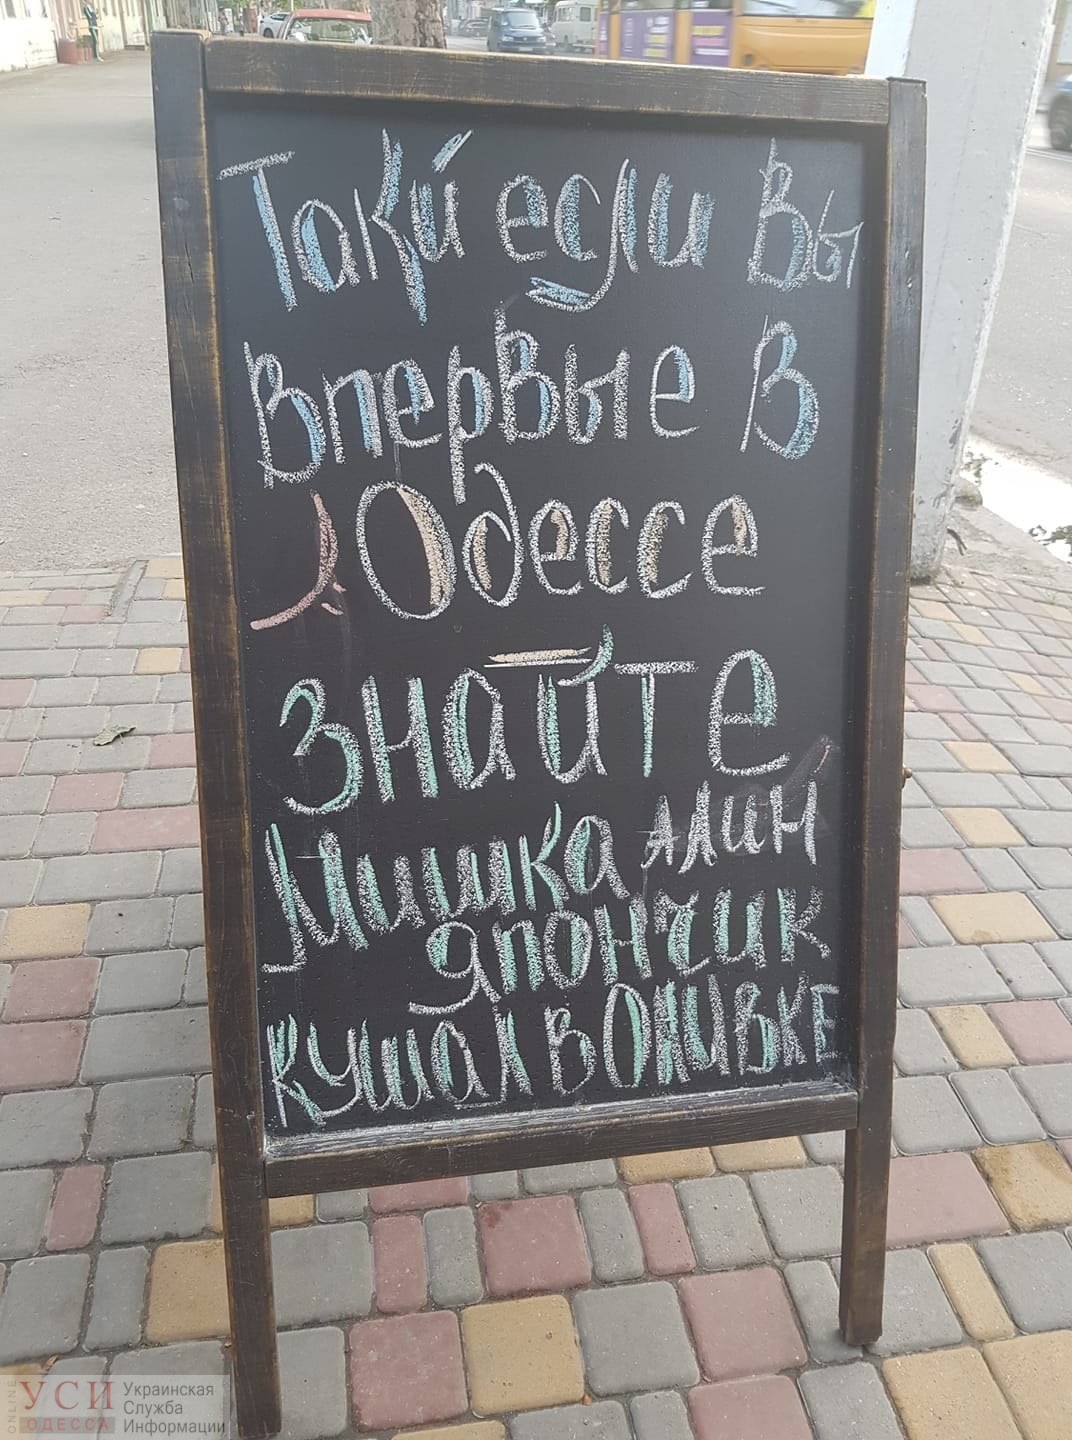 Таки́ если Вы
Впервые В
Одессе
знайте,
Мишка АЛИН
япончик
кушал в ОЖИВКЕ
УСИ Украинская
ОДЕССА Служба
ONLINE Информации